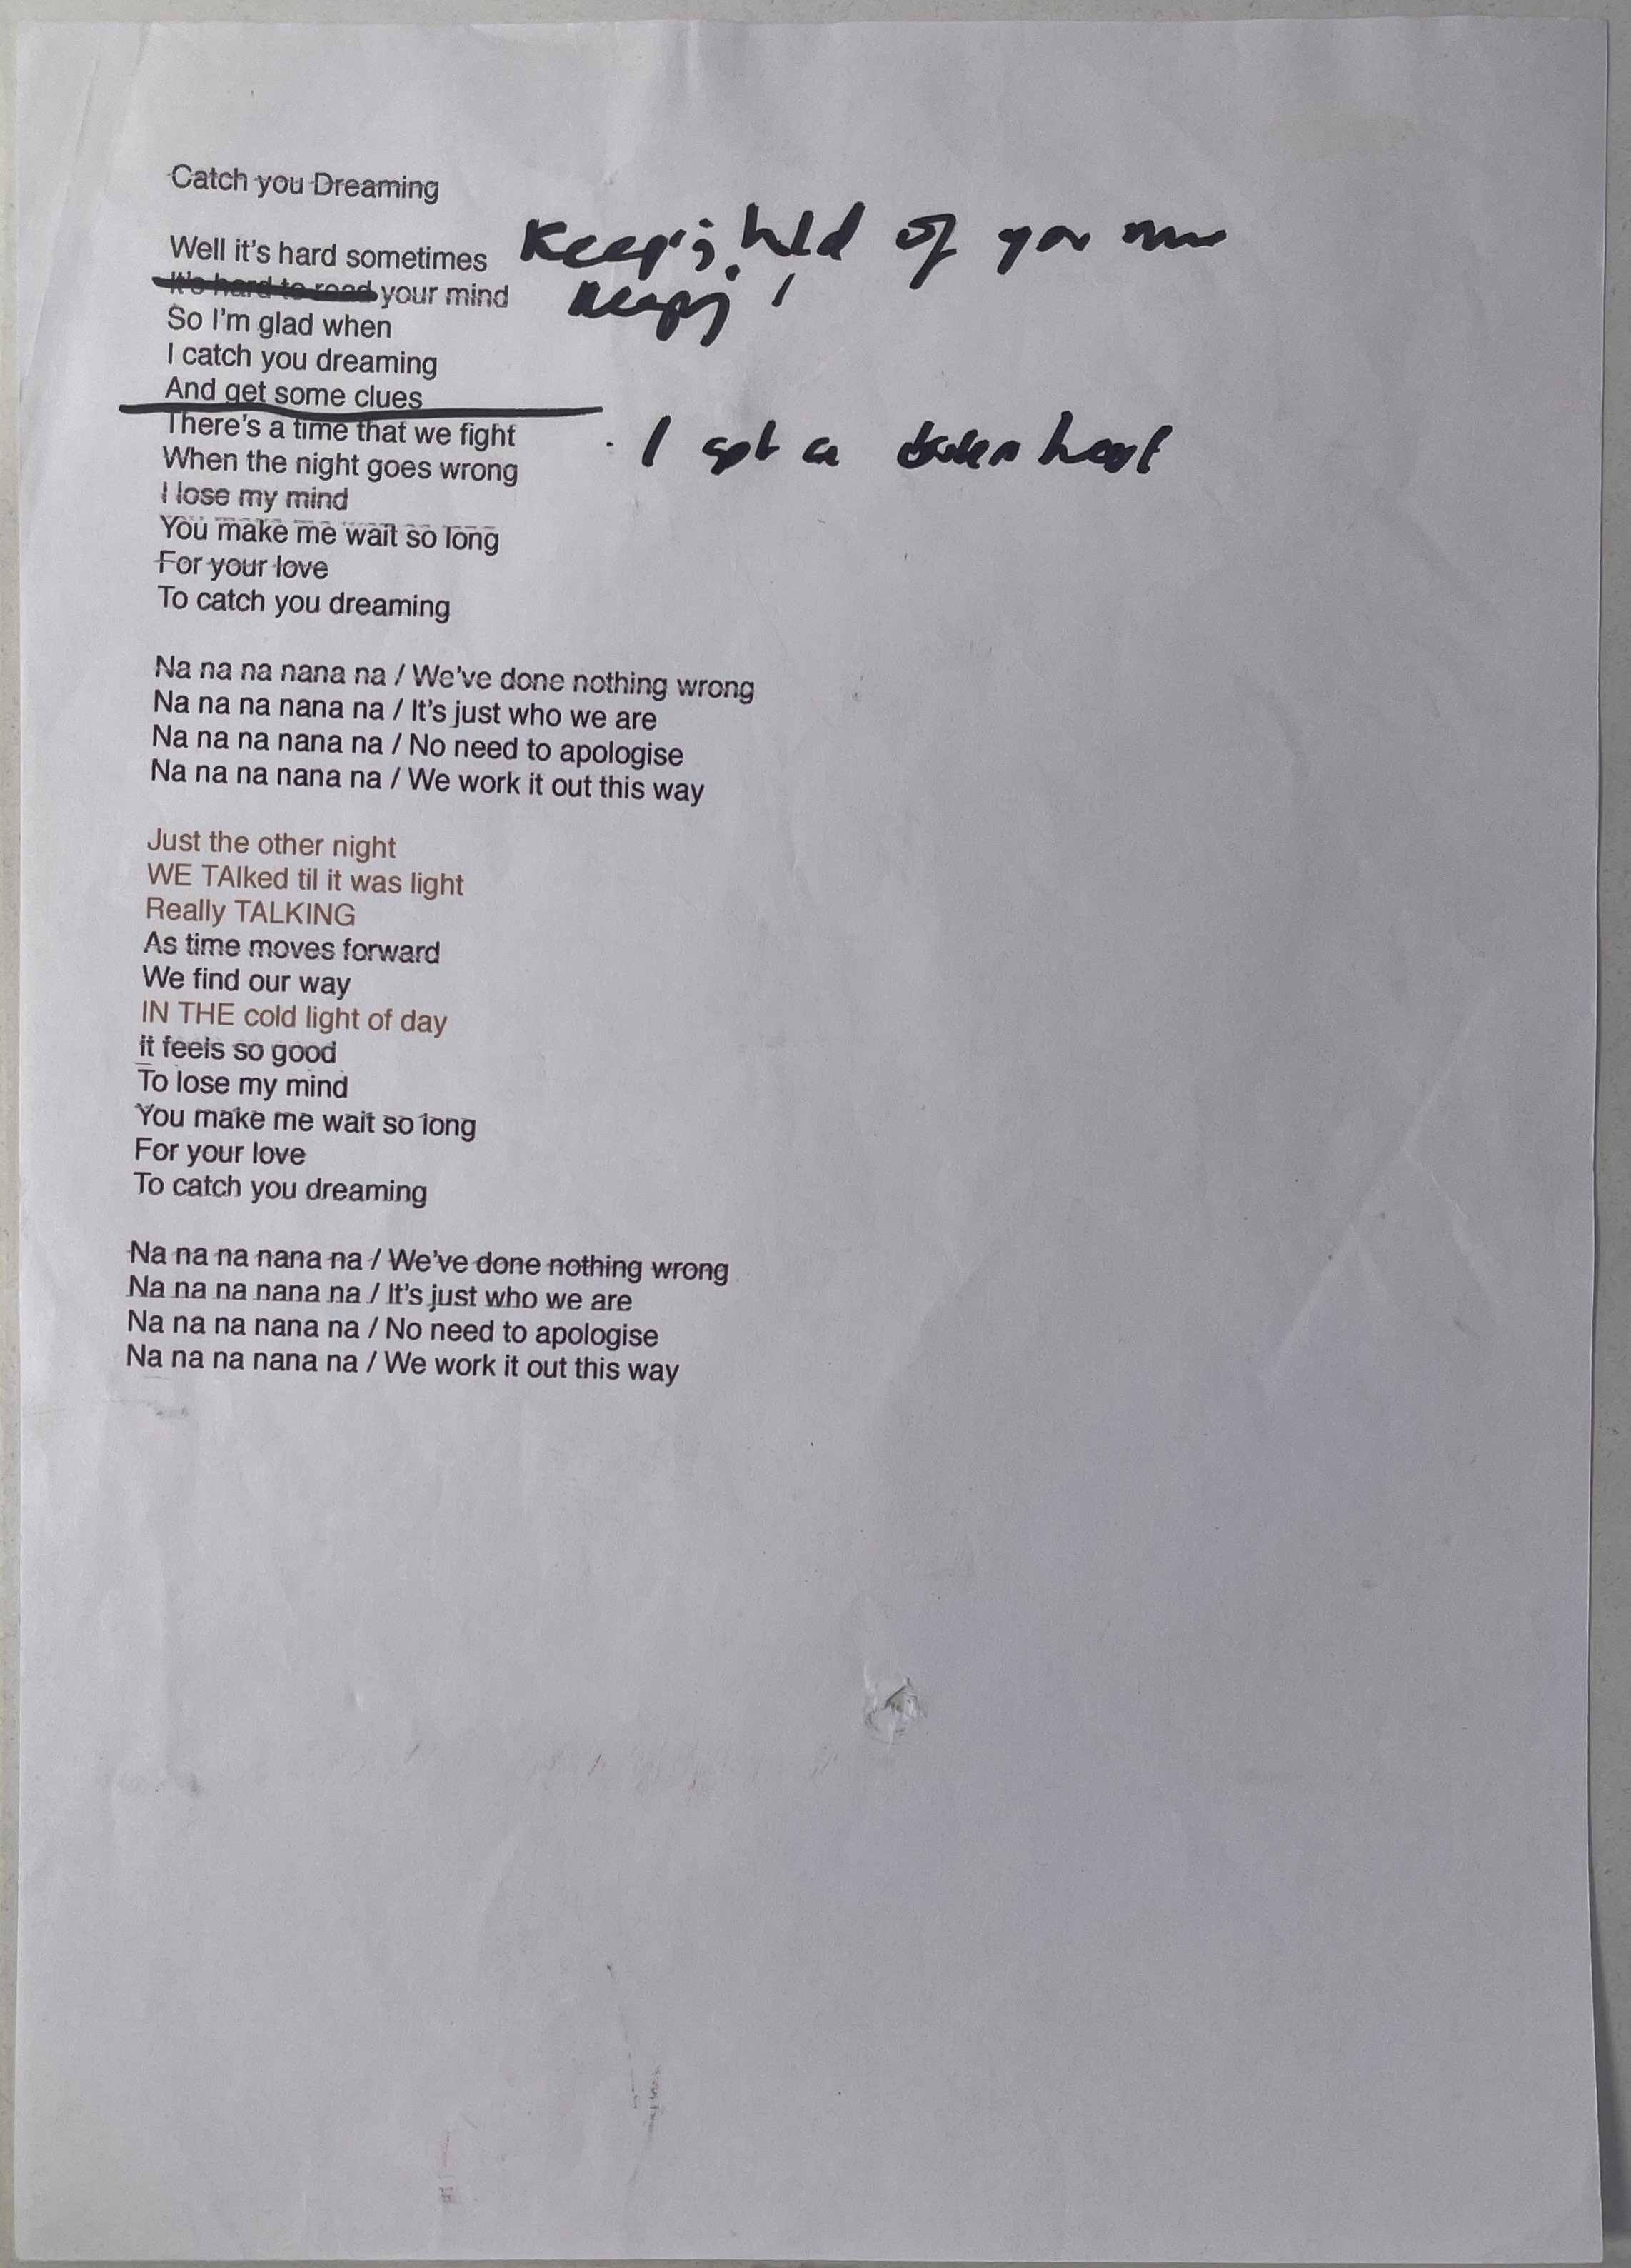 Catch you Dreaming
Well it's hard sometimes Keeping hold of your
It's hard to read your mind
So I'm glad when
I catch you dreaming
And get some clues
There's a time that we fight I got a broken heart
When the night goes wrong
I lose my mind
You make me wait so long
For your love
To catch you dreaming
Na na na nana na / We've done nothing wrong
Na na na nana na / It's just who we are
Na na na nana na / No need to apologise
Na na na nana na / We work it out this way
Just the other night
WE TAlked til it was light
Really TALKING
As time moves forward
We find our way
IN THE cold light of day
it feels so good
To lose my mind
You make me wait so long
For your love
To catch you dreaming
Na na na nana na / We've done nothing wrong
Na na na nana na / It's just who we are
Na na na nana na / No need to apologise
Na na na nana na / We work it out this way